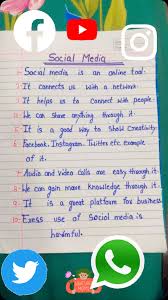 Social Media
1- Social media is an online tool.
2- It connects us with a network.
3- It helps us to connect with people.
4- We can share anything through it.
5- It is a good way to show Creativity.
6- Facebook, Instagram, Twitter etc. example
of it.
7- Audio and video calls are easy through it.
8- We can gain more knowledge through it.
9- It is a great platform for business.
10- Exess use of social media is
harmful.